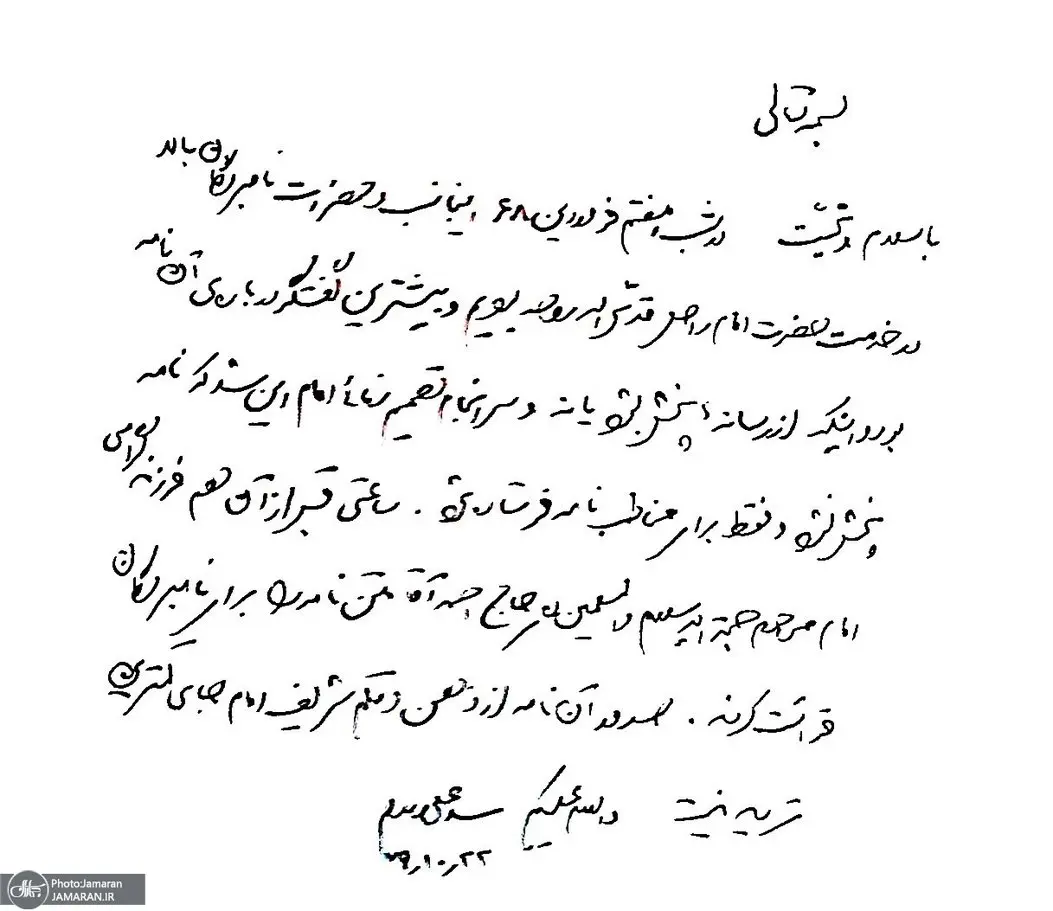 بسمه تعالی
با سلام و تحیّت در شب هفتم فروردین ۶۸ اینجانب و حضرات نامبردگان بالا
در خدمت حضرت امام راحل قدّس الله روحه بودیم و بیشترین گفتگو درباره‌ی آن نامه
بود و اینکه از رسانه‌ها پخش بشود یا نه و سرانجام تصمیم نهائی امام این شد که نامه
پخش نشود و فقط برای مخاطب نامه فرستاده شود . ساعتی قبل از آن هم فرزند گرامی
امام مرحوم حجة الاسلام والمسلمین حاج احمد آقا متن نامه را برای نامبردگان
قرائت کردند . صدور آن نامه از ذهن و قلم شریف امام جای کمترین
تردید نیست والسلام علیکم سید علی
۷۹٫۱۰٫۲۲
Photo:Jamaran
JAMARAN.IR